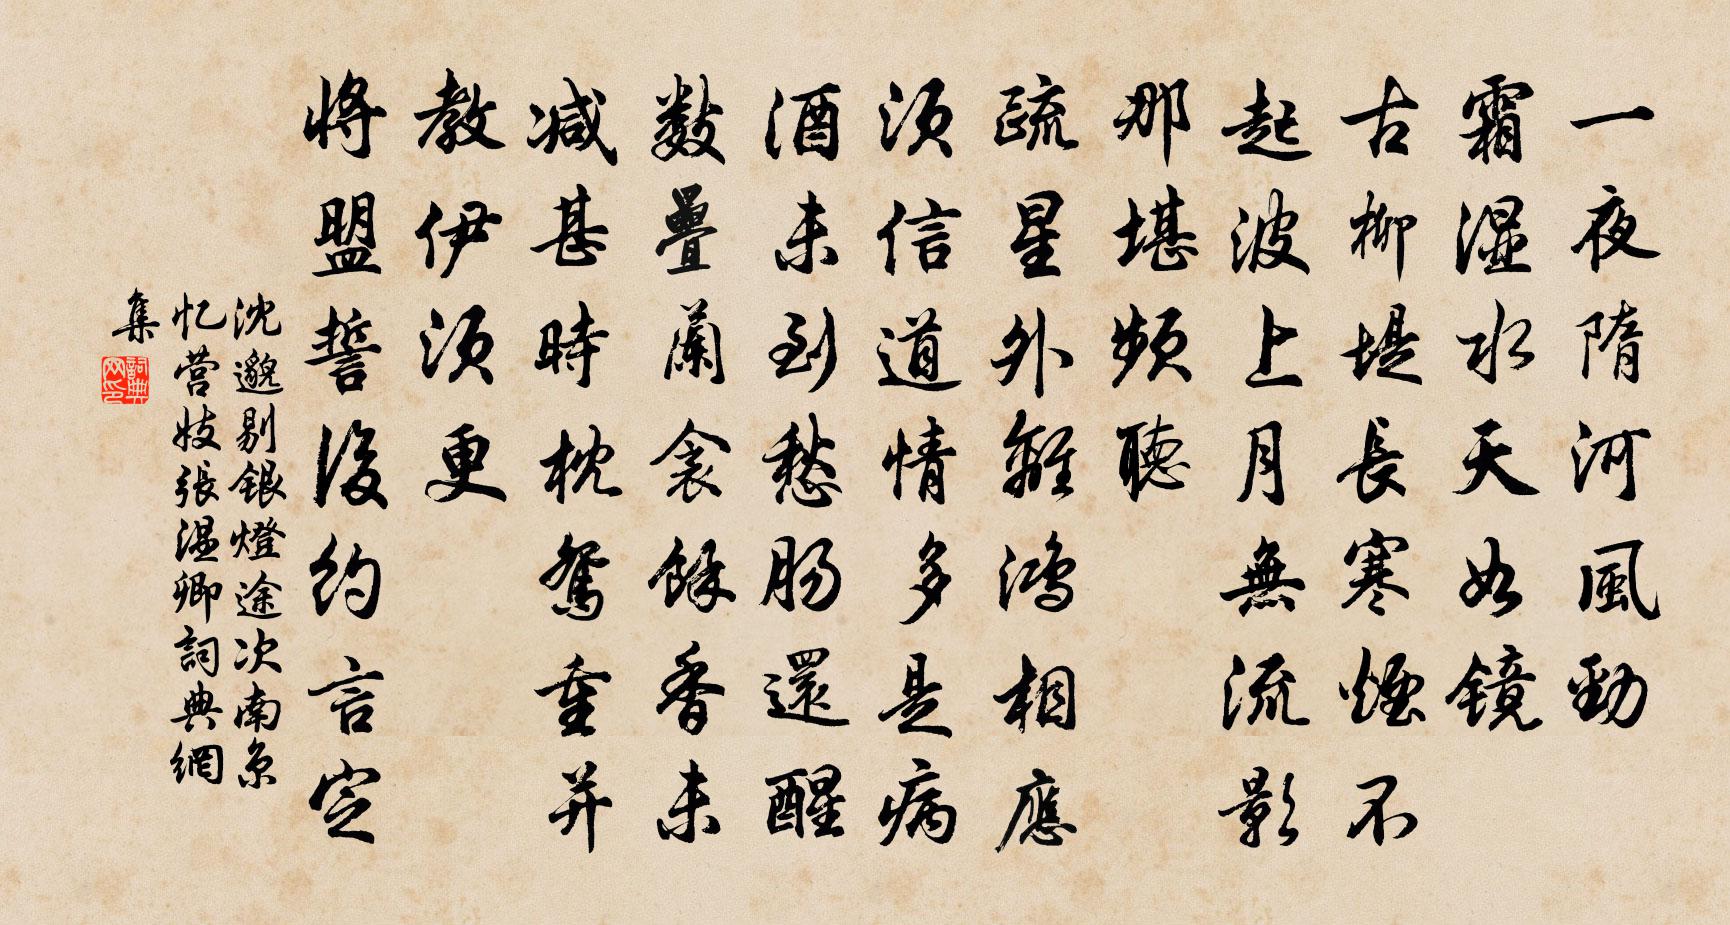 一夜隋河風勁
霜濕水天如鏡
古柳堤長寒煙不
起波上月無流影
那堪頻聽
疏星外離鴻相應
須信道情多是病
酒未到愁腸還醒
數疊蘭衾餘香未
減甚時枕鴛重并
教伊須更
將盟誓後約言定
沈邈剔銀燈途次南京
忆营妓張温卿詞典網
集
詞典網印